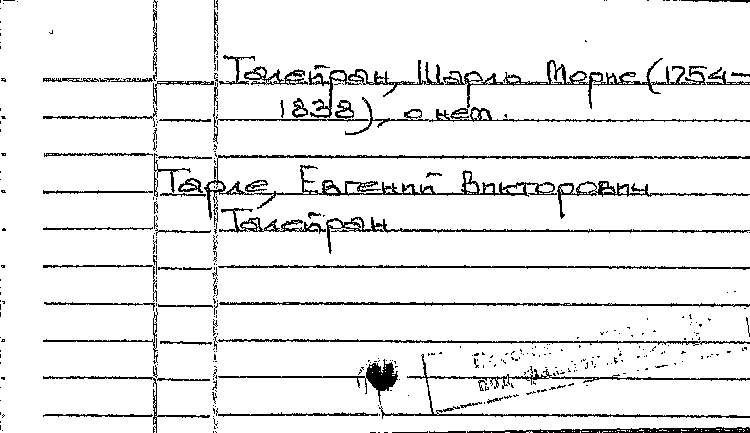 Талейран, Шарль Морис (1754-
1838), о нем.
Тарле, Евгений Викторович
Талейран